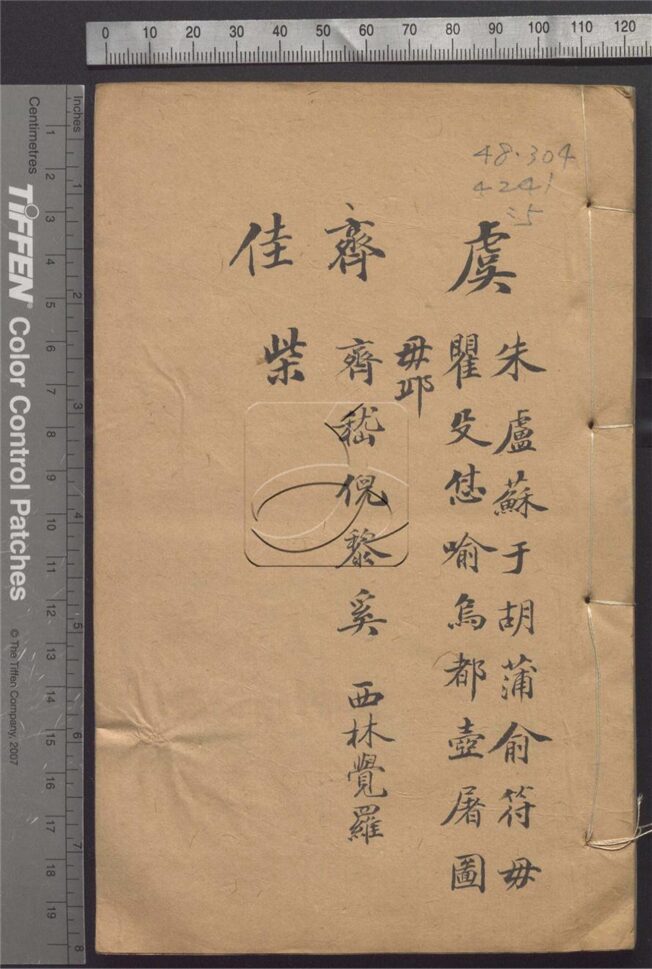 48.304
4241
:5
虞
朱盧蘇于胡蒲俞符毋
瞿殳恁喻烏都壺屠圖
毋邛
齊
齊嵇倪黎奚 西林覺羅
佳
柴
0 10 20 30 40 50 60 70 80 90 100 110 120
Inches
1 2 3 4 5 6 7 8
Centimetres
1 2 3 4 5 6 7 8 9 10 11 12 13 14 15 16 17 18 19
TIFFEN® Color Control Patches
© The Tiffen Company, 2007